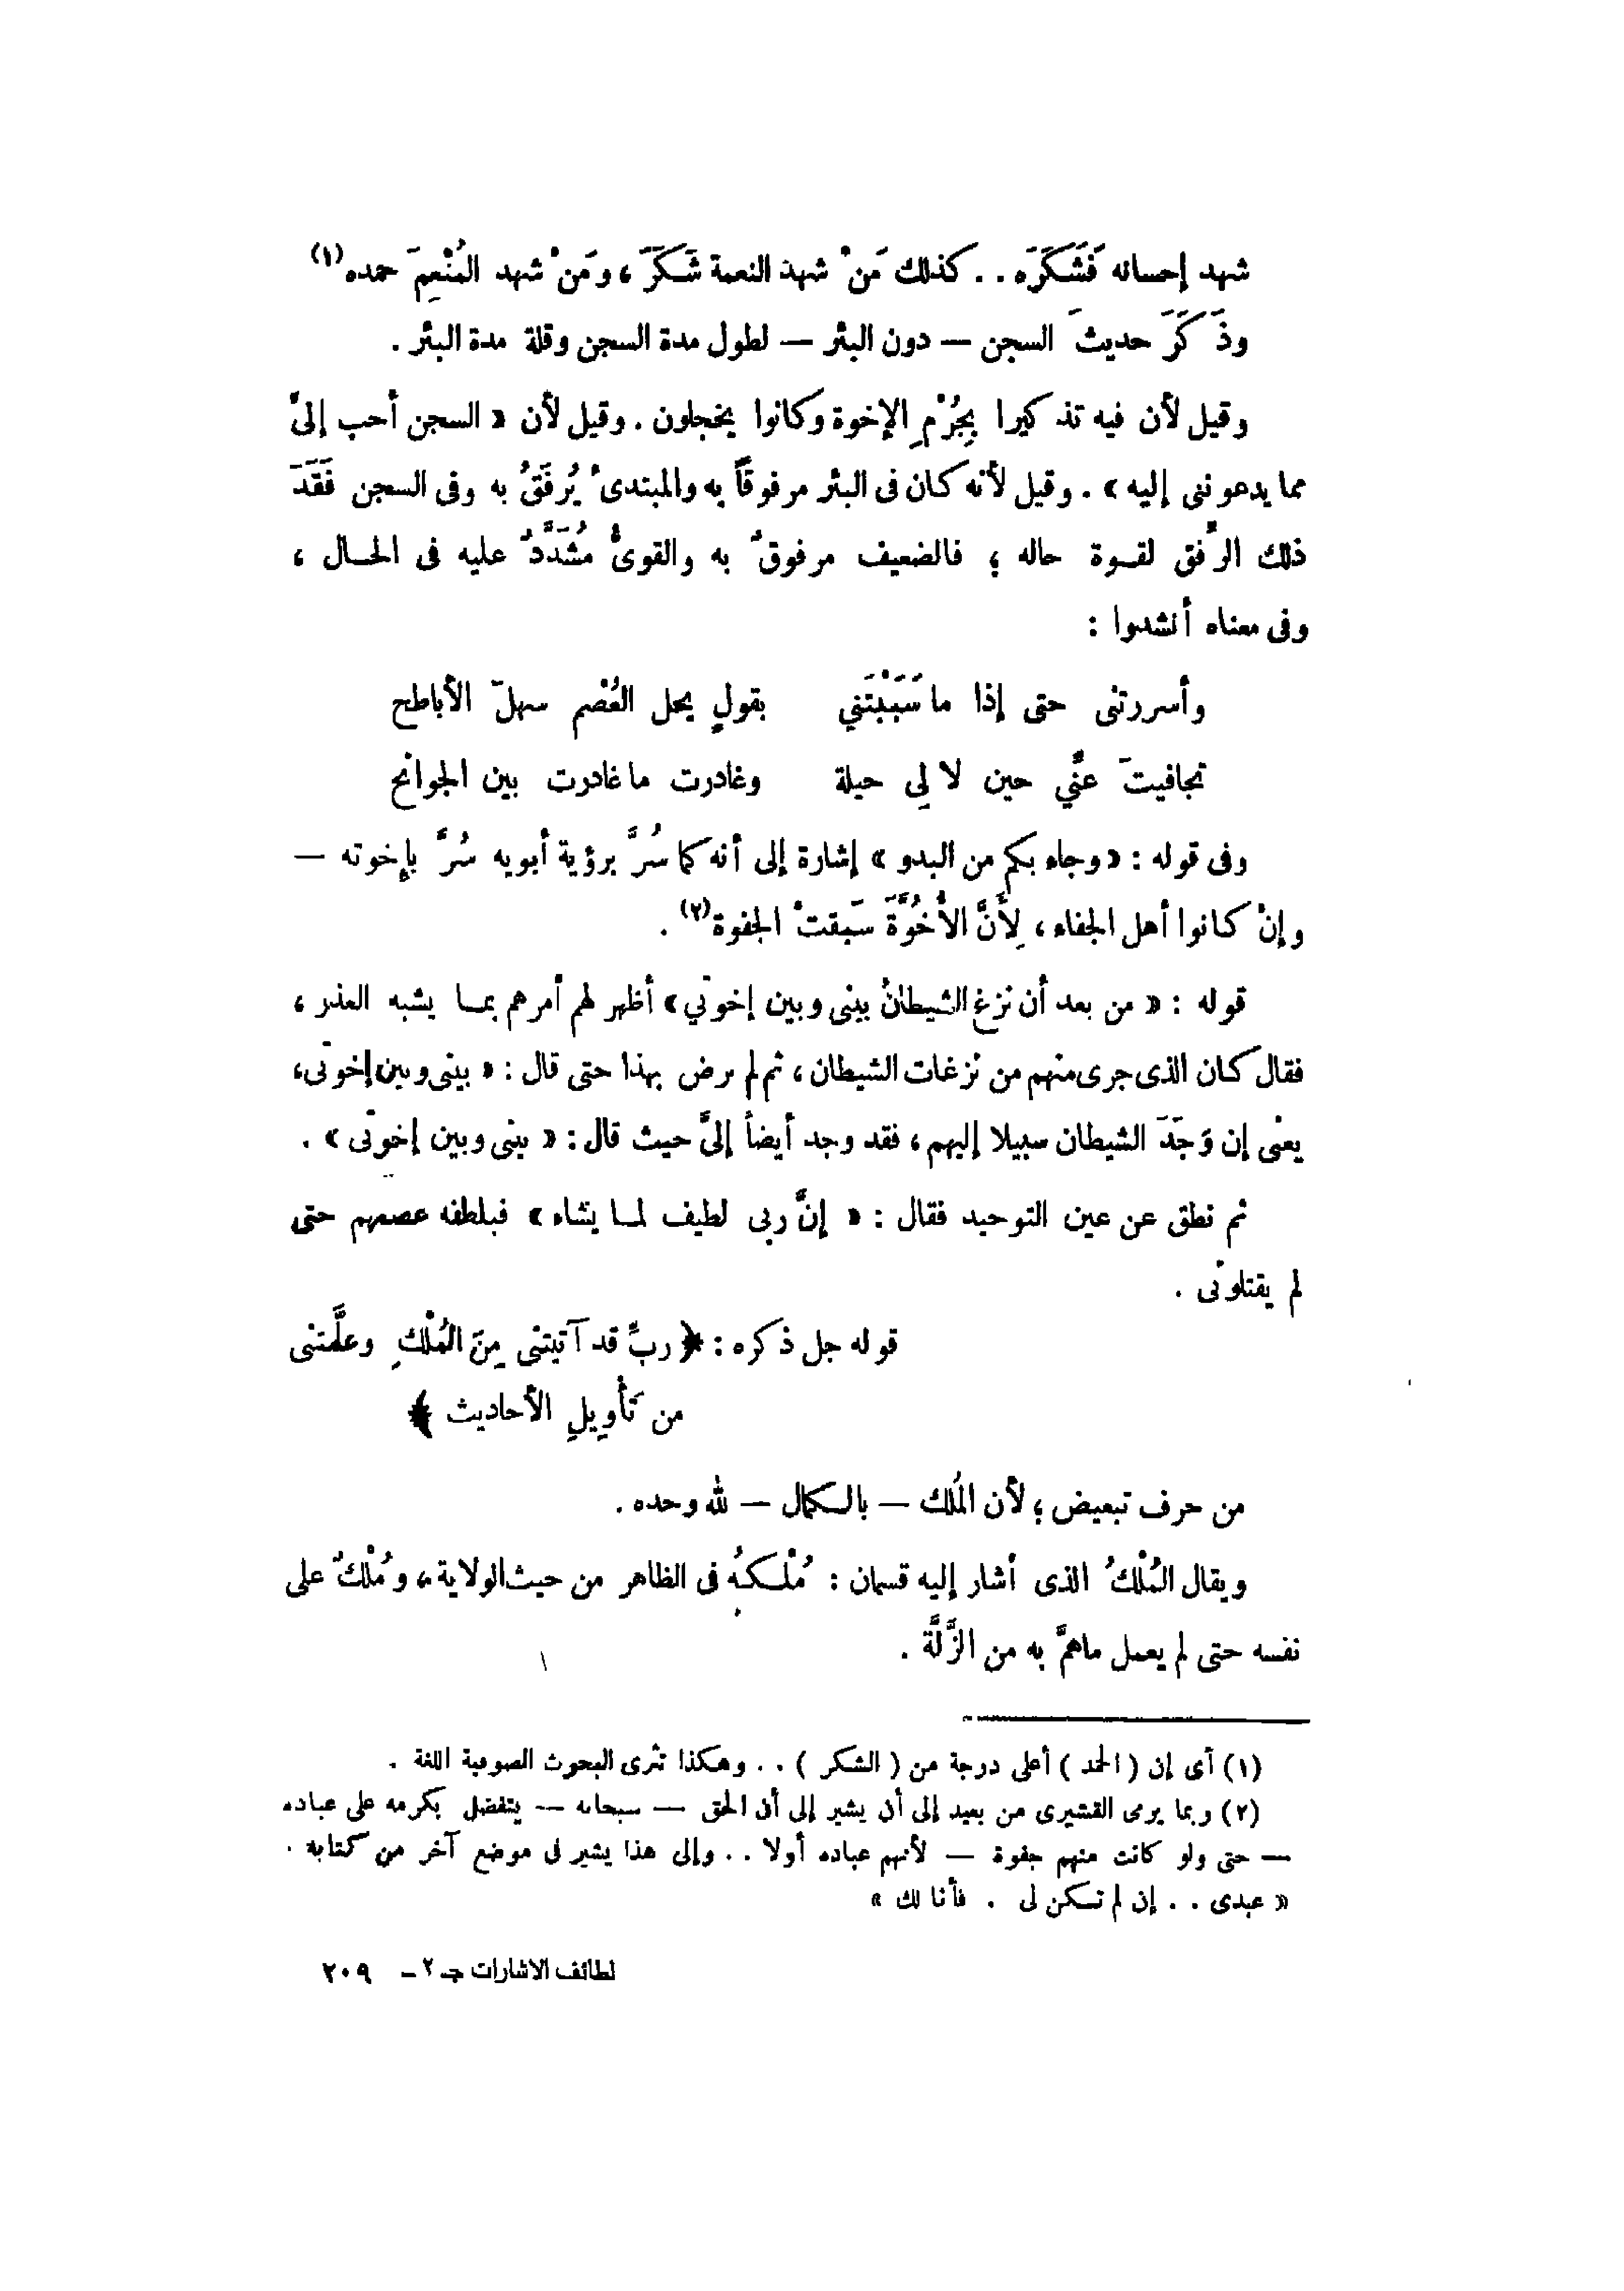 شهد إحسانه فَشَكَرَه . . كذلك مَنْ شهد النعمة شَكَرَ ، ومَنْ شهد المُنْعِمَ حمده(١)
وذَكَرَ حديثَ السجن — دون البئر — لطول مدة السجن وقلة مدة البئر .
وقيل لأن فيه تذكيرا بِجُرْمِ الإخوة وكانوا يخجلون . وقيل لأن « السجن أحب إلىَّ
مما يدعوننى إليه » . وقيل لأنه كان فى البئر مرفوقاً به والمبتدىءُ يُرفَقُ به وفى السجن فَقَدَ
ذلك الرِّفق لقـوة حاله ؛ فالضعيف مرفوقٌ به والقوىُّ مُشَدَّدٌ عليه فى الحـال ،
وفى معناه أنشدوا :
وأسررتنى حتى إذا ما سَبَبْتَنِي بقولٍ يحل العُصْم سهلَ الأباطح
تجافيتَ عنِّي حين لا لِى حيلة وغادرت ما غادرت بين الجوانح
وفى قوله : « وجاء بكم من البدو » إشارة إلى أنه كما سُرَّ برؤية أبويه سُرَّ بإخوته —
وإنْ كانوا أهل الجفاء ، لِأَنَّ الأُخُوَّةَ سَبقتْ الجفوة(٢) .
قوله : « من بعد أن نزغ الشيطانُ بينى وبين إخوتي » أظهر لهم أمرهم بمـا يشبه العذر ،
فقال كان الذى جرى منهم من نزغات الشيطان ، ثم لم يرض بهذا حتى قال : « بينى وبين إخوتى »
يعنى إن وَجَدَ الشيطان سبيلا إليهم ، فقد وجد أيضاً إلىَّ حيث قال : « بينى وبين إخوتى » .
ثم نطق عن عين التوحيد فقال : « إنَّ ربى لطيف لمـا يشاء » فبلطفه عصمهم حتى
لم يقتلونى .
قوله جل ذكره : ﴿ ربِّ قد آتيتنى مِنَ المُلْكِ وعلَّمتنى
من تَأْوِيلِ الأحاديث ﴾
من حرف تبعيض ؛ لأن المُلك — بالـكمال — لله وحده .
ويقال المُلْكُ الذى أشار إليه قسمان : مُلْـكُه فى الظاهر من حيث الولاية ، ومُلْكٌ على
نفسه حتى لم يعمل ما همَّ به من الزَّلَّة .
(١) أى إن ( الحمد ) أعلى درجة من ( الشكر ) . . وهكذا تثرى البحوث الصوفية اللغة .
(٢) وبما يرمى القشيرى من بعيد إلى أن يشير إلى أن الحق — سبحانه — يتفضل بكرمه على عباده
— حتى ولو كانت منهم جفوة — لأنهم عباده أولا . . وإلى هذا يشير فى موضع آخر من كتابة .
« عبدى . . إن لم تـكن لى . فأنا لك »
لطائف الاشارات جـ ٢ – ٢٠٩